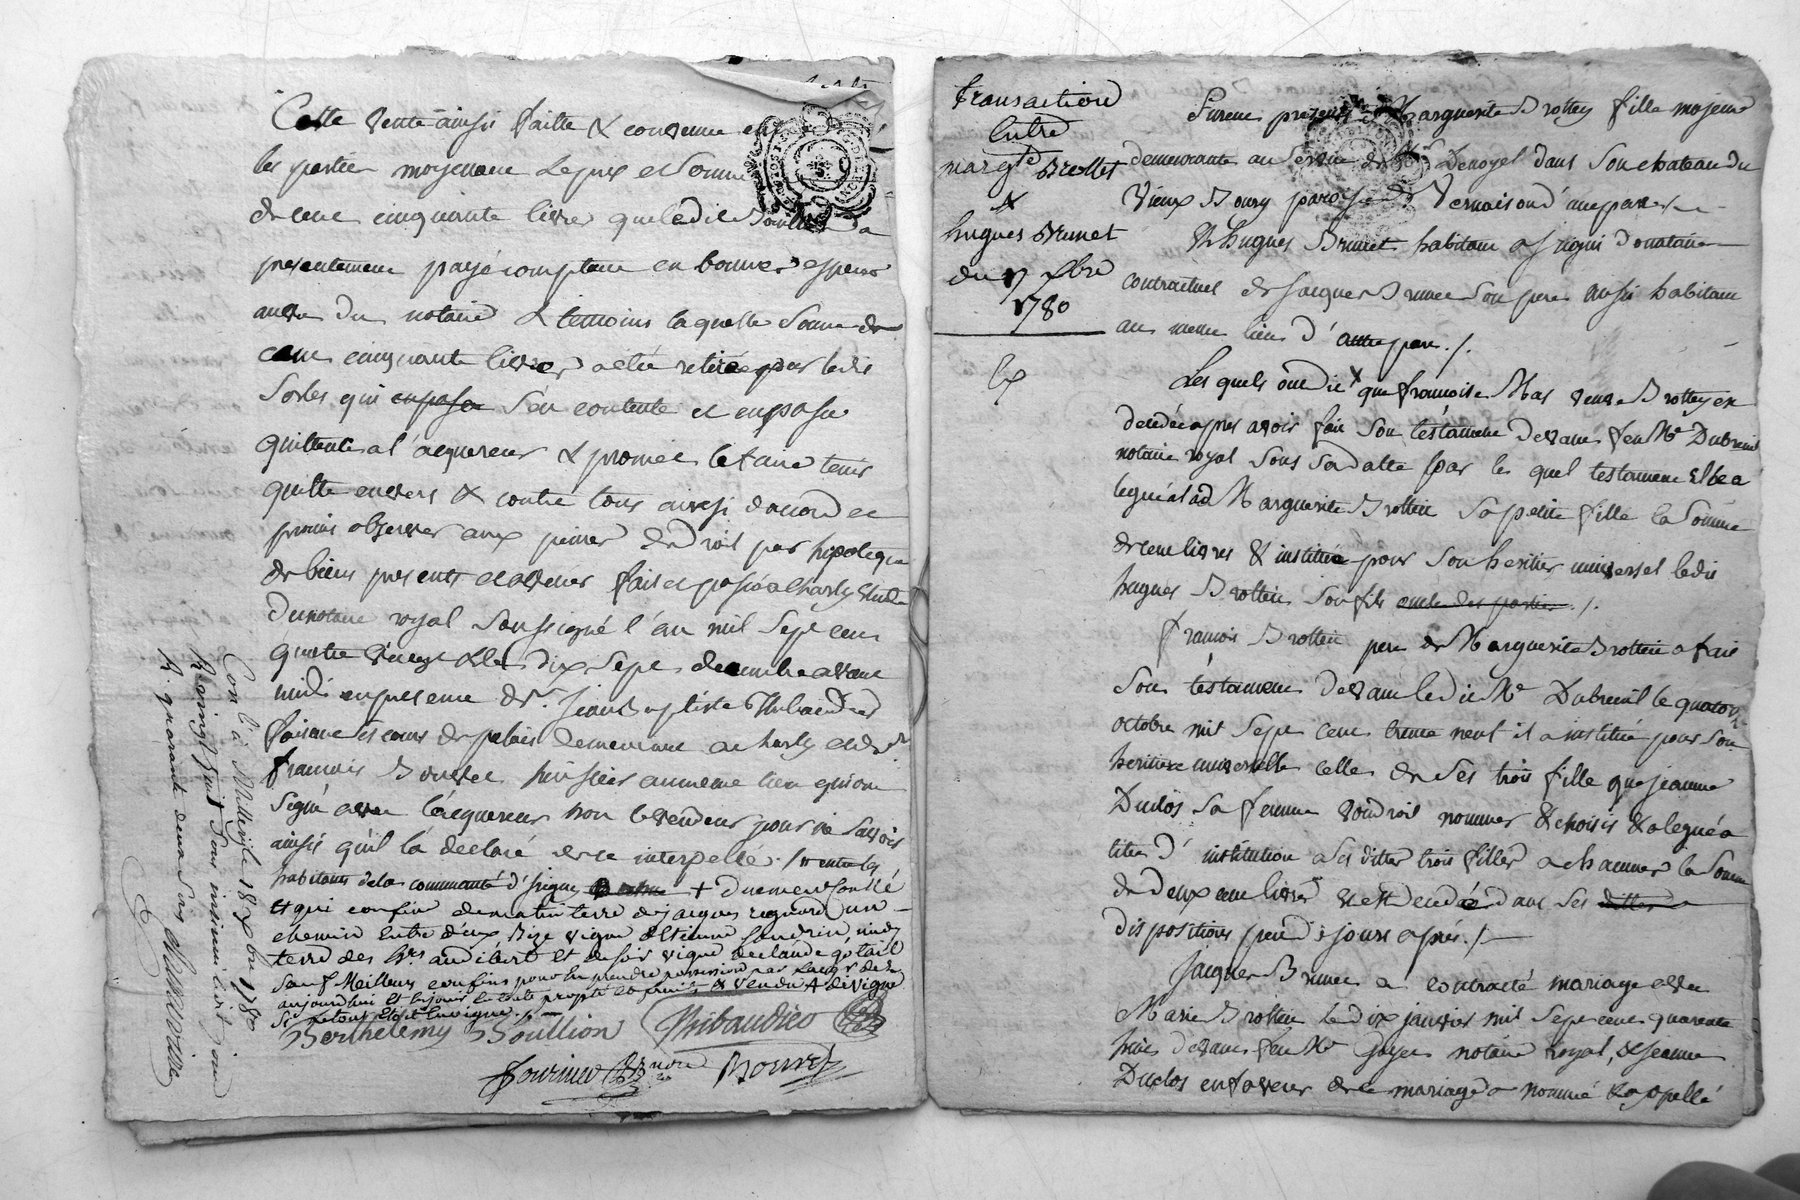 Cette vente ainsi faitte & convenue
les parties moyenant le prix et Somme
de cent cinquante livres que ledit Boullion a
presentement payé comptant en bonnes especes
au vu du notaire & temoins laquelle Somme de
cent cinquante livres a été retirée par ledit
qui en passe s'en contente et en passe
quittance a l'acquereur & promet le faire tenir
quitte envers & contre tous ainsi d'accord et
promis observer aux peines de droit par hipoteque
de biens presents et avenir fait et passé a Charly Etude
du notaire royal Soussigné l'an mil Sept cent
quatre vingt & le dix Sept decembre avant
midi en presence de Sr. Jean Baptiste Thibaudier
faisant ses cours de palais demeurant a Charly et de Sr
francois Bouvet huissier au meme lieu qui ont
Signé avec l'acquereur non le vendeur pour ne Savoir
ainsi qu'il l'a declaré de ce interpellé ./.
habitants de la communauté d'Irigny + du emenconclé
Et qui confine de matin terre de jacques un
chemin Entre deux Bize vigne d'Etienne midy
terre des hrs et de soir vigne
Sauf Meilleurs confins pour En prendre possession
aujourdhui Et toujours & vendu + de vigne
Berthelemy Boullion Thibaudier
fournier nore Bouvet
Con. lé à Millery le 18 Xbre 1780
R vingt huit Sous
R. quarante deux Sous
transaction
Entre
margte Brottet
&
hugues Brunet
du 17 Xbre
1780
Furent presents Marguerite Brottey fille majeure
demeurante au Service de Mr Denoyel dans Son chateau du
Vieux Bourg paroisse de Vernaison d'une part
Et hugues Brunet habitant a Irigni donataire
contractuel de Jacques Brunet Son pere aussi habitant
au meme lieu d'autre part ./.
Les quels ont dit que francoise Mas veuve Brottey est
decedée apres avoir fait Son testament devant feu Me Dubreuil
notaire royal Sous Sa datte par le quel testament Elle a
legué a lad Marguerite Brottier Sa petite fille la Somme
de cent livres & institué pour Son heritier universel ledit
hugues Brottier Son fils ./.
francois Brottier pere de Marguerite Brottier a fait
Son testament devant ledit Me Dubreuil le quatorze
octobre mil Sept cent trente neuf il a institué pour Son
heritiere universelle celle de Ses trois fille que jeanne
Duclos Sa femme voudroit nommer & choisir & a legué a
titre d'institution a Ses dittes trois filles a chacunes la Somme
de deux cent livres & est decedé dans Ses dittes
dispositions peu de jours après ./.
Jacques Brunet a contracté mariage avec
Marie Brottier le dix janvier mil Sept cent quarante
huit devant feu Me Goyet notaire royal, & Jeanne
Duclos en faveur de ce mariage a nommé & appellé